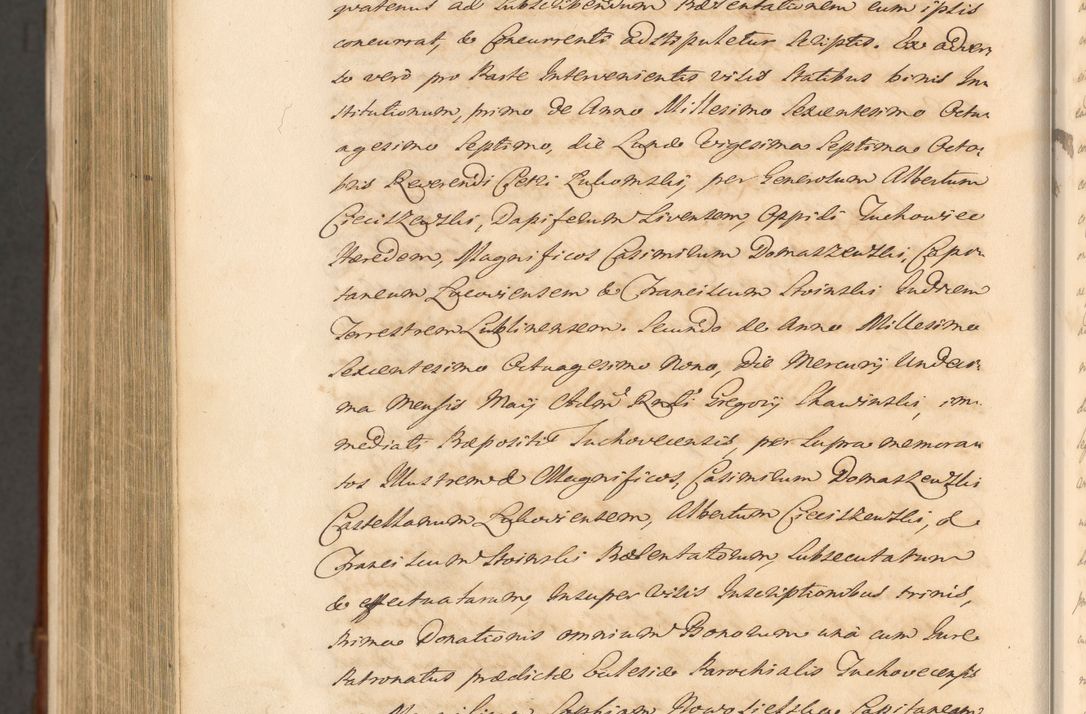 quatenus ad subscribendum Præsentationem cum ipsis
concurrat, & concurrenti adstipuletur scripto. Ex adver
so verò pro Parte Intervenientis visis Statibus binis In
stitutionum, primo de Anno Millesimo Sexcentesimo Octu
agesimo Septimo, die Lunæ Vigesima Septima Octo
bris Reverendi Petri Lukomski, per Generosum Albertum
Cieciszewski, Dapiferum Livensem, Oppidi Tuchowiec
Hæredem, Magnificos Casimirum Domaszewski, Capi
taneum Lucoviensem & Franciscum Stoinski Judicem
Terrestrem Lublinensem. Secundo de Anno Millesimo
Sexcentesimo Octuagesimo Nono, die Mercurij Undeci
ma mensis Maij Adm Rndi Gregorij Skawinski, im
mediati Præpositi Tuchovecensis, per supra memora
tos Illustrem & Magnificos, Casimirum Domaszewski
Castellanum Lukoviensem, Albertum Cieciszewski, &
Franciscum Stoinski Præsentatorum, subsecutarum
& effectuatarum, Insuper visis Inscriptionibus trinis,
Prima Donationis omnium Bonorum unà cum Jure
Patronatus prædictæ Ecclesiæ Parochialis Tuchovecensis